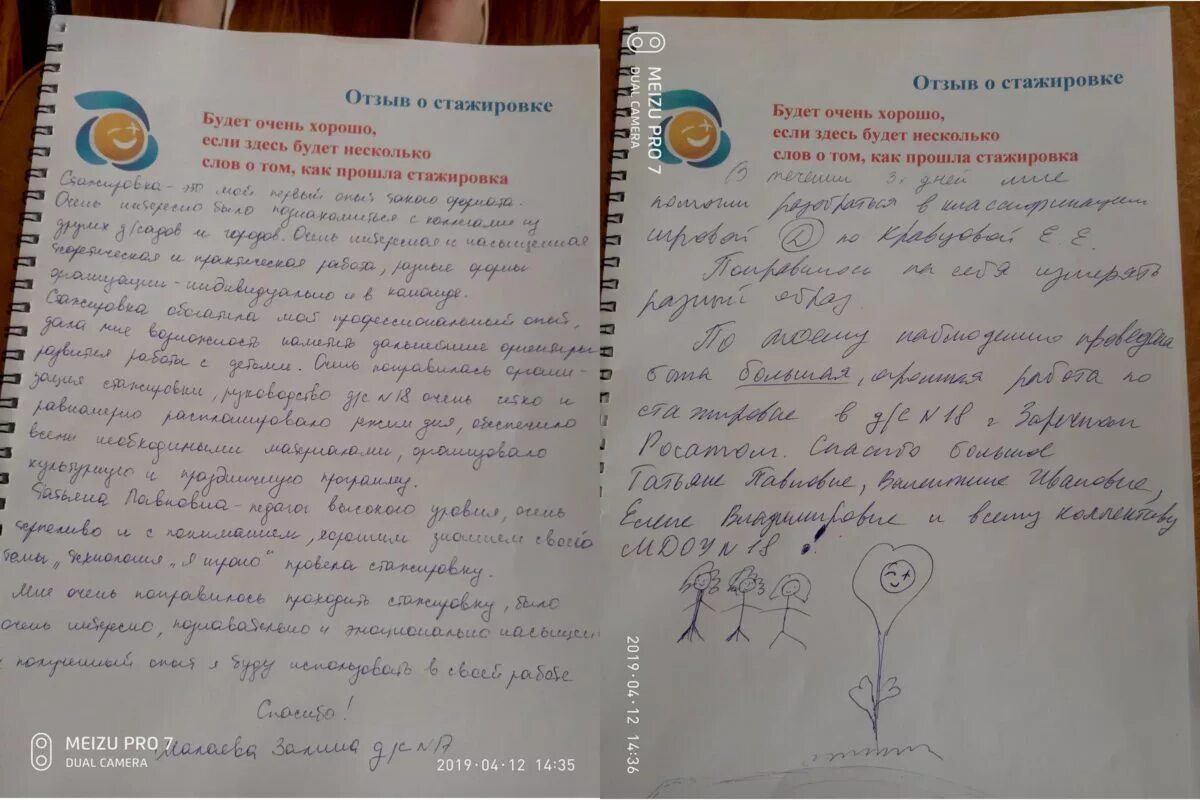 Отзыв о стажировке
Будет очень хорошо,
если здесь будет несколько
слов о том, как прошла стажировка
Стажировка - это мой первый опыт такого формата.
Очень интересно было познакомиться с коллегами из
других д/садов и городов. Очень интересная и насыщенная
теоретическая и практическая работа, разные формы
организации - индивидуально и в команде.
Стажировка обогатила мой профессиональный опыт,
дала мне возможность наметить дальнейшие ориентиры
развития работы с детьми. Очень понравилась органи-
зация стажировки, руководство д/с №18 очень четко и
равномерно распланировало режим дня, обеспечило
всеми необходимыми материалами, организовало
культурную и праздничную программу.
Татьяна Павловна - педагог высокого уровня, очень
терпеливо и с пониманием, хорошим знанием своей
темы, "Технология "Я играю" провела стажировку.
Мне очень понравилось проходить стажировку, было
очень интересно, познавательно и эмоционально насыщен
полученный опыт я буду использовать в своей работе
Спасибо!
Залина д/с №17
MEIZU PRO 7
DUAL CAMERA
2019·04·12 14:35
MEIZU PRO 7
DUAL CAMERA
Отзыв о стажировке
Будет очень хорошо,
если здесь будет несколько
слов о том, как прошла стажировка
В течении 3х дней мне
помогли разобраться в классификации
игровой Д по Кравцовой Е. Е.
Понравилось на себя измерять
разный образ
По моему наблюдению проведена
была большая, огромная работа по
стажировке в д/с №18 г Заречном
Росатом. Спасибо большое
Татьяне Павловне, Валентине Ивановне,
Елене Владимировне и всему коллективу
МДОУ №18
2019·04·12 14:36